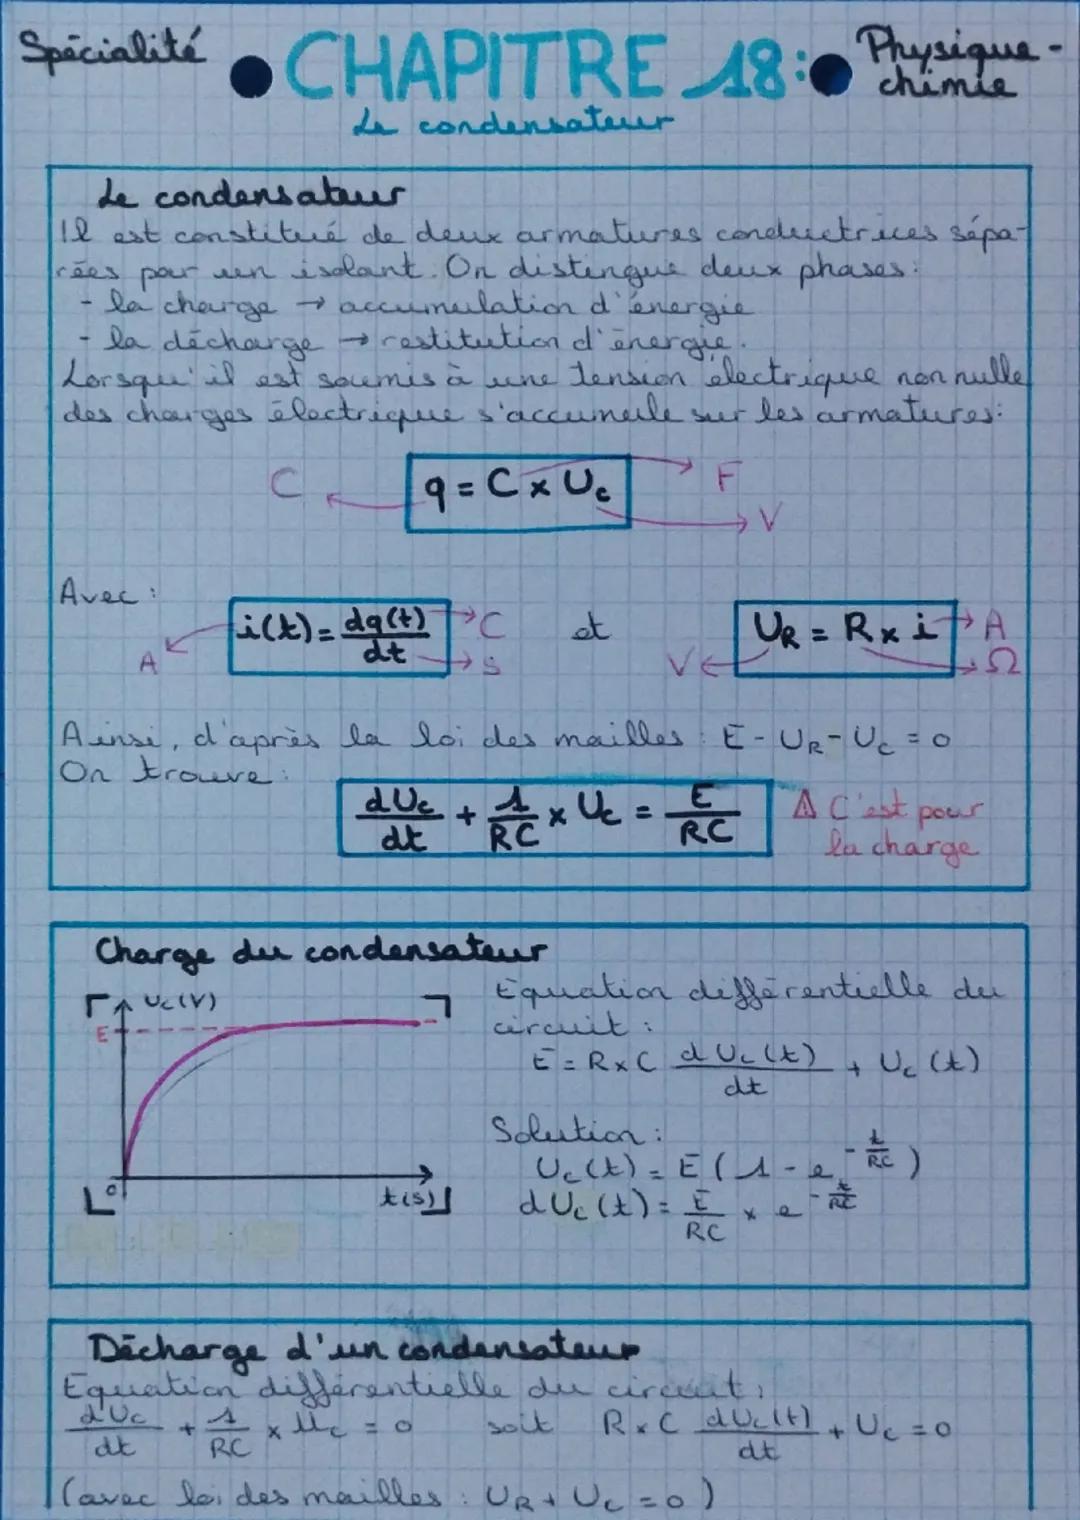 Spécialité
CHAPITRE 18:
Physique-
chimie
Le condensateur
Le condensateur
Il est constitué de deux armatures conductrices sépa-
rées par un isolant. On distingue deux phases:
- la charge → accumulation d'énergie
- la décharge → restitution d'énergie.
Lorsqu'il est soumis à une tension électrique non nulle
des charges électrique s'accumule sur les armatures:
C q = C x Uc F
V
Avec :
i(t) = dq(t)/dt C
A s
et
UR = R x i A
V Ω
Ainsi, d'après la loi des mailles : E - UR - Uc = 0
On trouve :
dUc/dt + 1/RC x Uc = E/RC
⚠ C'est pour
la charge
Charge du condensateur
Uc(V)
E
0
t(s)
Equation différentielle du
circuit :
E = R x C dUc(t)/dt + Uc(t)
Solution :
Uc(t) = E(1 - e^-t/RC)
dUc(t) = E/RC x e^-t/RC
Décharge d'un condensateur
Equation différentielle du circuit :
dUc/dt + 1/RC x Uc = 0 soit R x C dUc(t)/dt + Uc = 0
(avec loi des mailles : UR + Uc = 0)